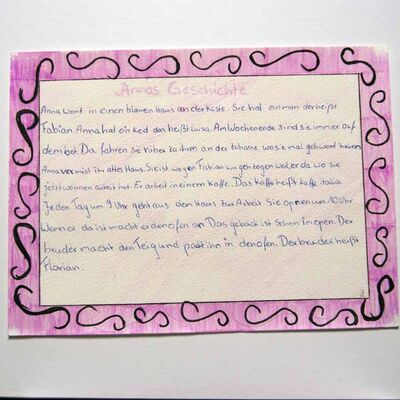 Annas Geschichte
Anna wont in einen blauen Haus an der Küste. Sie hat ein man der heißt
Fabian. Anna hat ein Keid das heißt Luisa. Am Wochenende sind sie immer auf
dem bot. Da fahren Sie rüber zu ihren an der zuhause wo sie mal gehwont haben.
Anna vermist ihr altes Haus. Sie ist wegen Fabian umgetzogen weil er da wo sie
jetzt wohnen arbeit hat. Er arbeit in einem kaffe. Das kaffe heißt kaffe italia.
Jeden Tag um 9 Uhr geht aus dem Haus zur Arbeit Sie öpnen um 10 Uhr
Wen er da ist macht er den ofen an. Das gebäck ist schon in open. Der
bruder macht den Teig und packt inn in den ofen. Der bruder heißt
Florian.